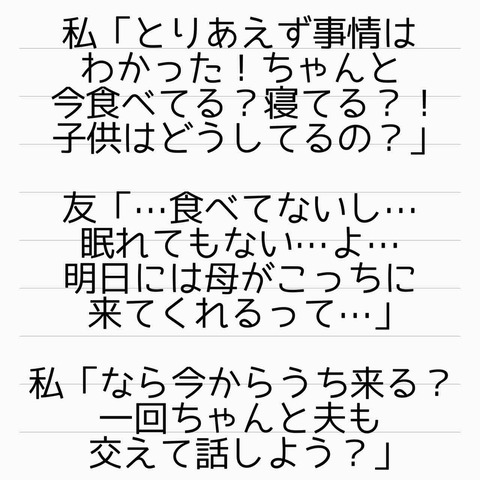 私「とりあえず事情は
わかった！ちゃんと
今食べてる？寝てる？！
子供はどうしてるの？」
友「…食べてないし…
眠れてもない…よ…
明日には母がこっちに
来てくれるって…」
私「なら今からうち来る？
一回ちゃんと夫も
交えて話しよう？」